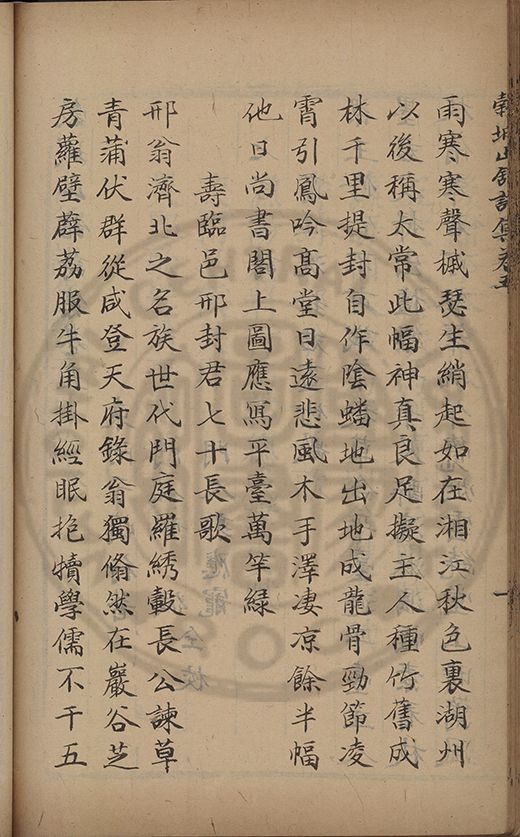 穀城山館詩集卷五
一
雨寒寒聲槭瑟生綃起如在湘江秋色裏湖州
以後稱太常此幅神真良足擬主人種竹舊成
林千里提封自作陰蟠地出地成龍骨勁節凌
霄引鳳吟高堂日遠悲風木手澤凄凉餘半幅
他日尚書閣上圖應寫平臺萬竿綠
壽臨邑邢封君七十長歌
邢翁濟北之名族世代門庭羅綉轂長公諫草
青蒲伏群從咸登天府錄翁獨翛然在巖谷芝
房蘿壁薜荔服牛角掛經眠抱犢學儒不干五